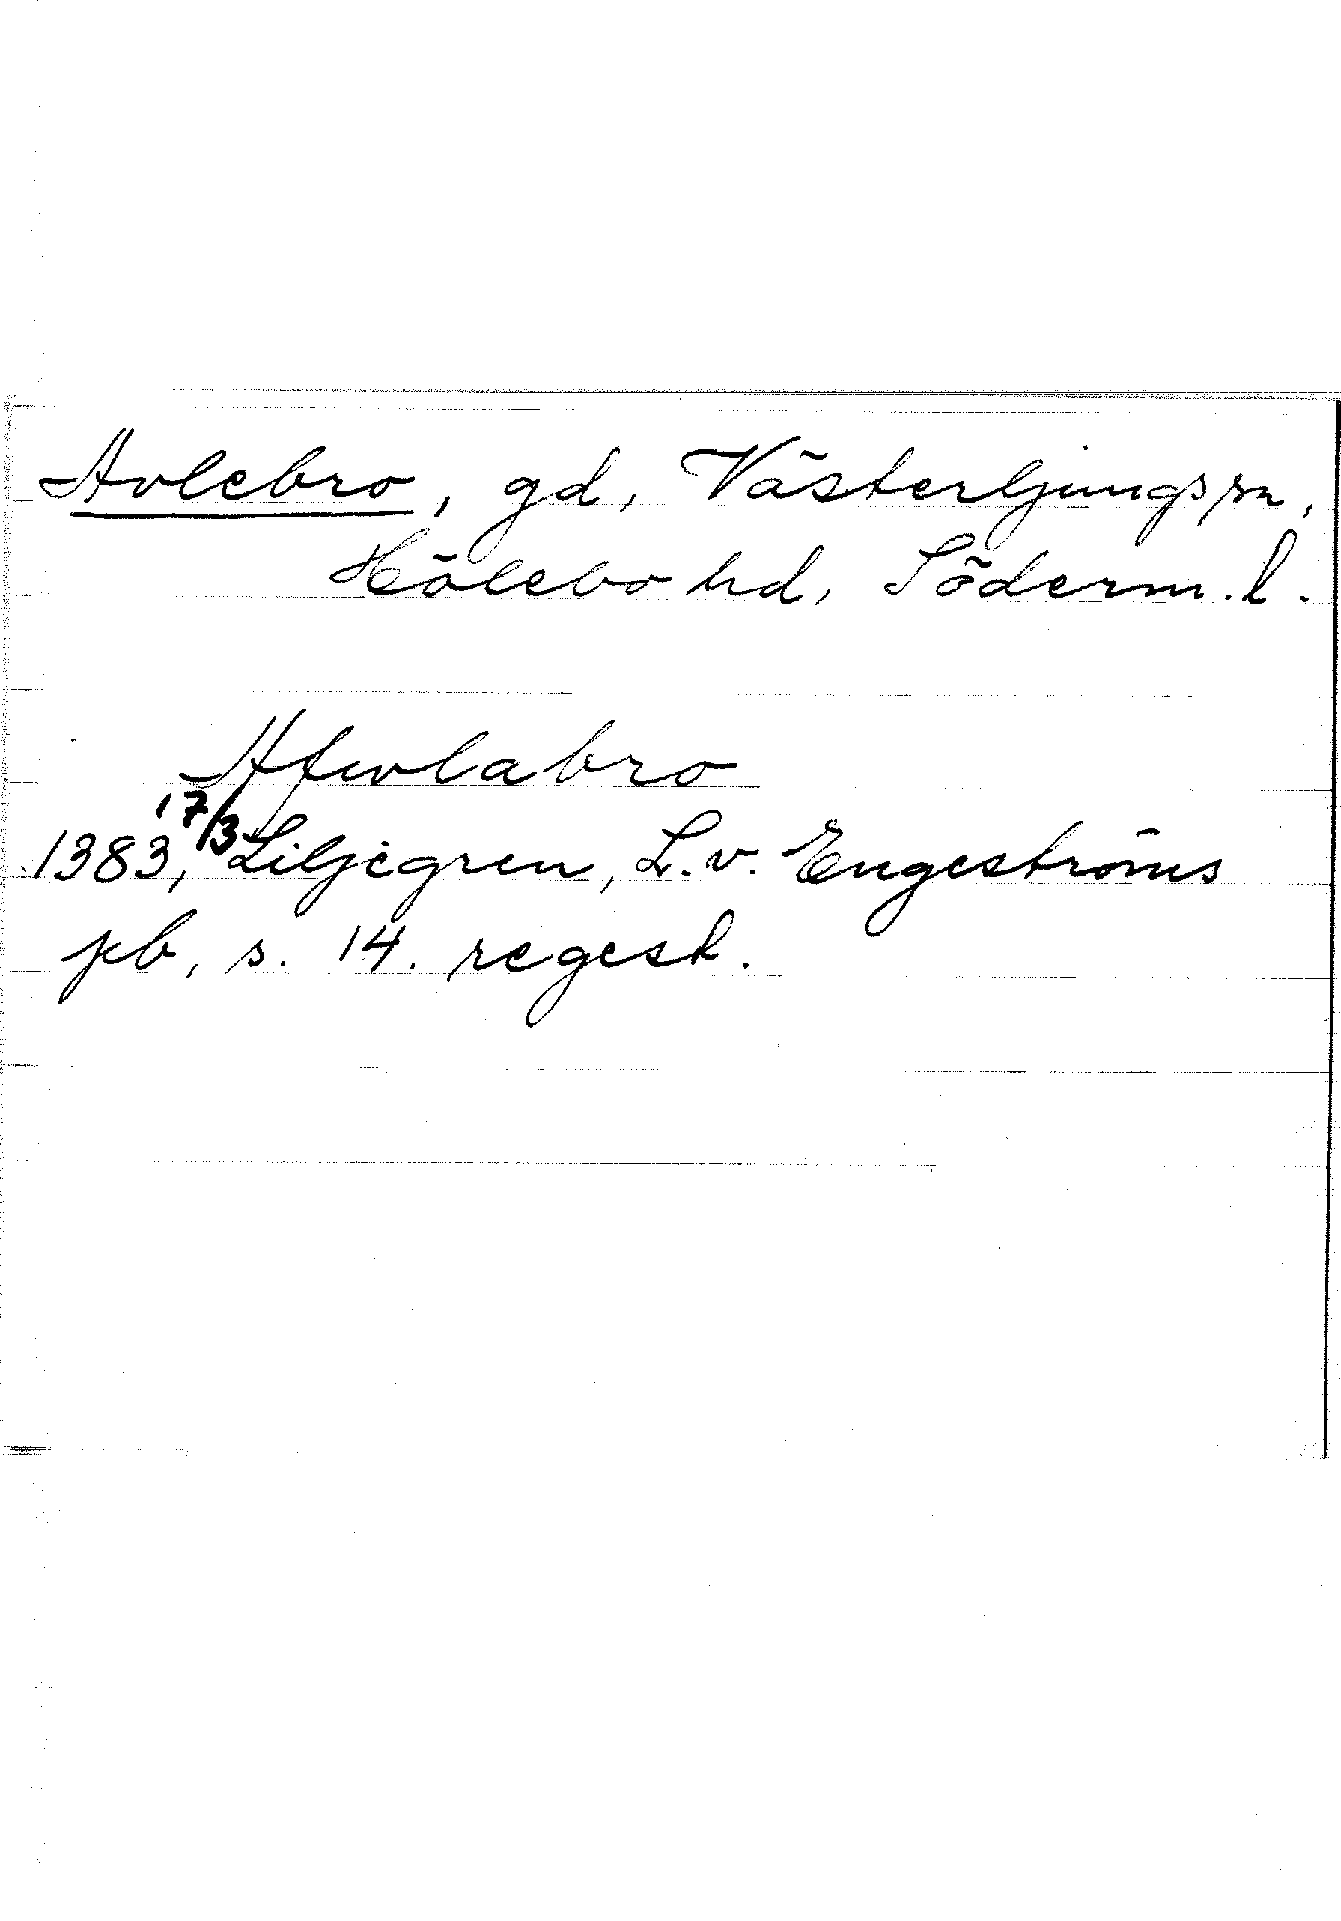 Avlebro, gd, Västerljungs sn,
Hölebo hd, Söderm. l.
Afwlabro
1383, 17/3 Liljegren, L. v. Engeströms
pb, s. 14. regest.